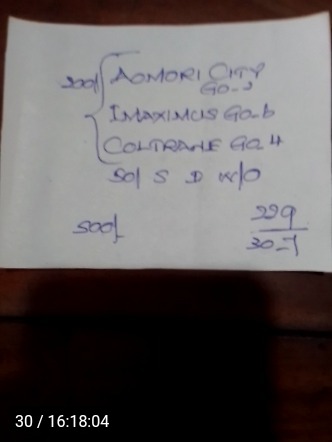 200/ AOMORI CITY
GO-2
IMAXIMUS GO-6
COLTRANE GO.4
50/ S D W/O
500/
229
30-7
30 / 16:18:04